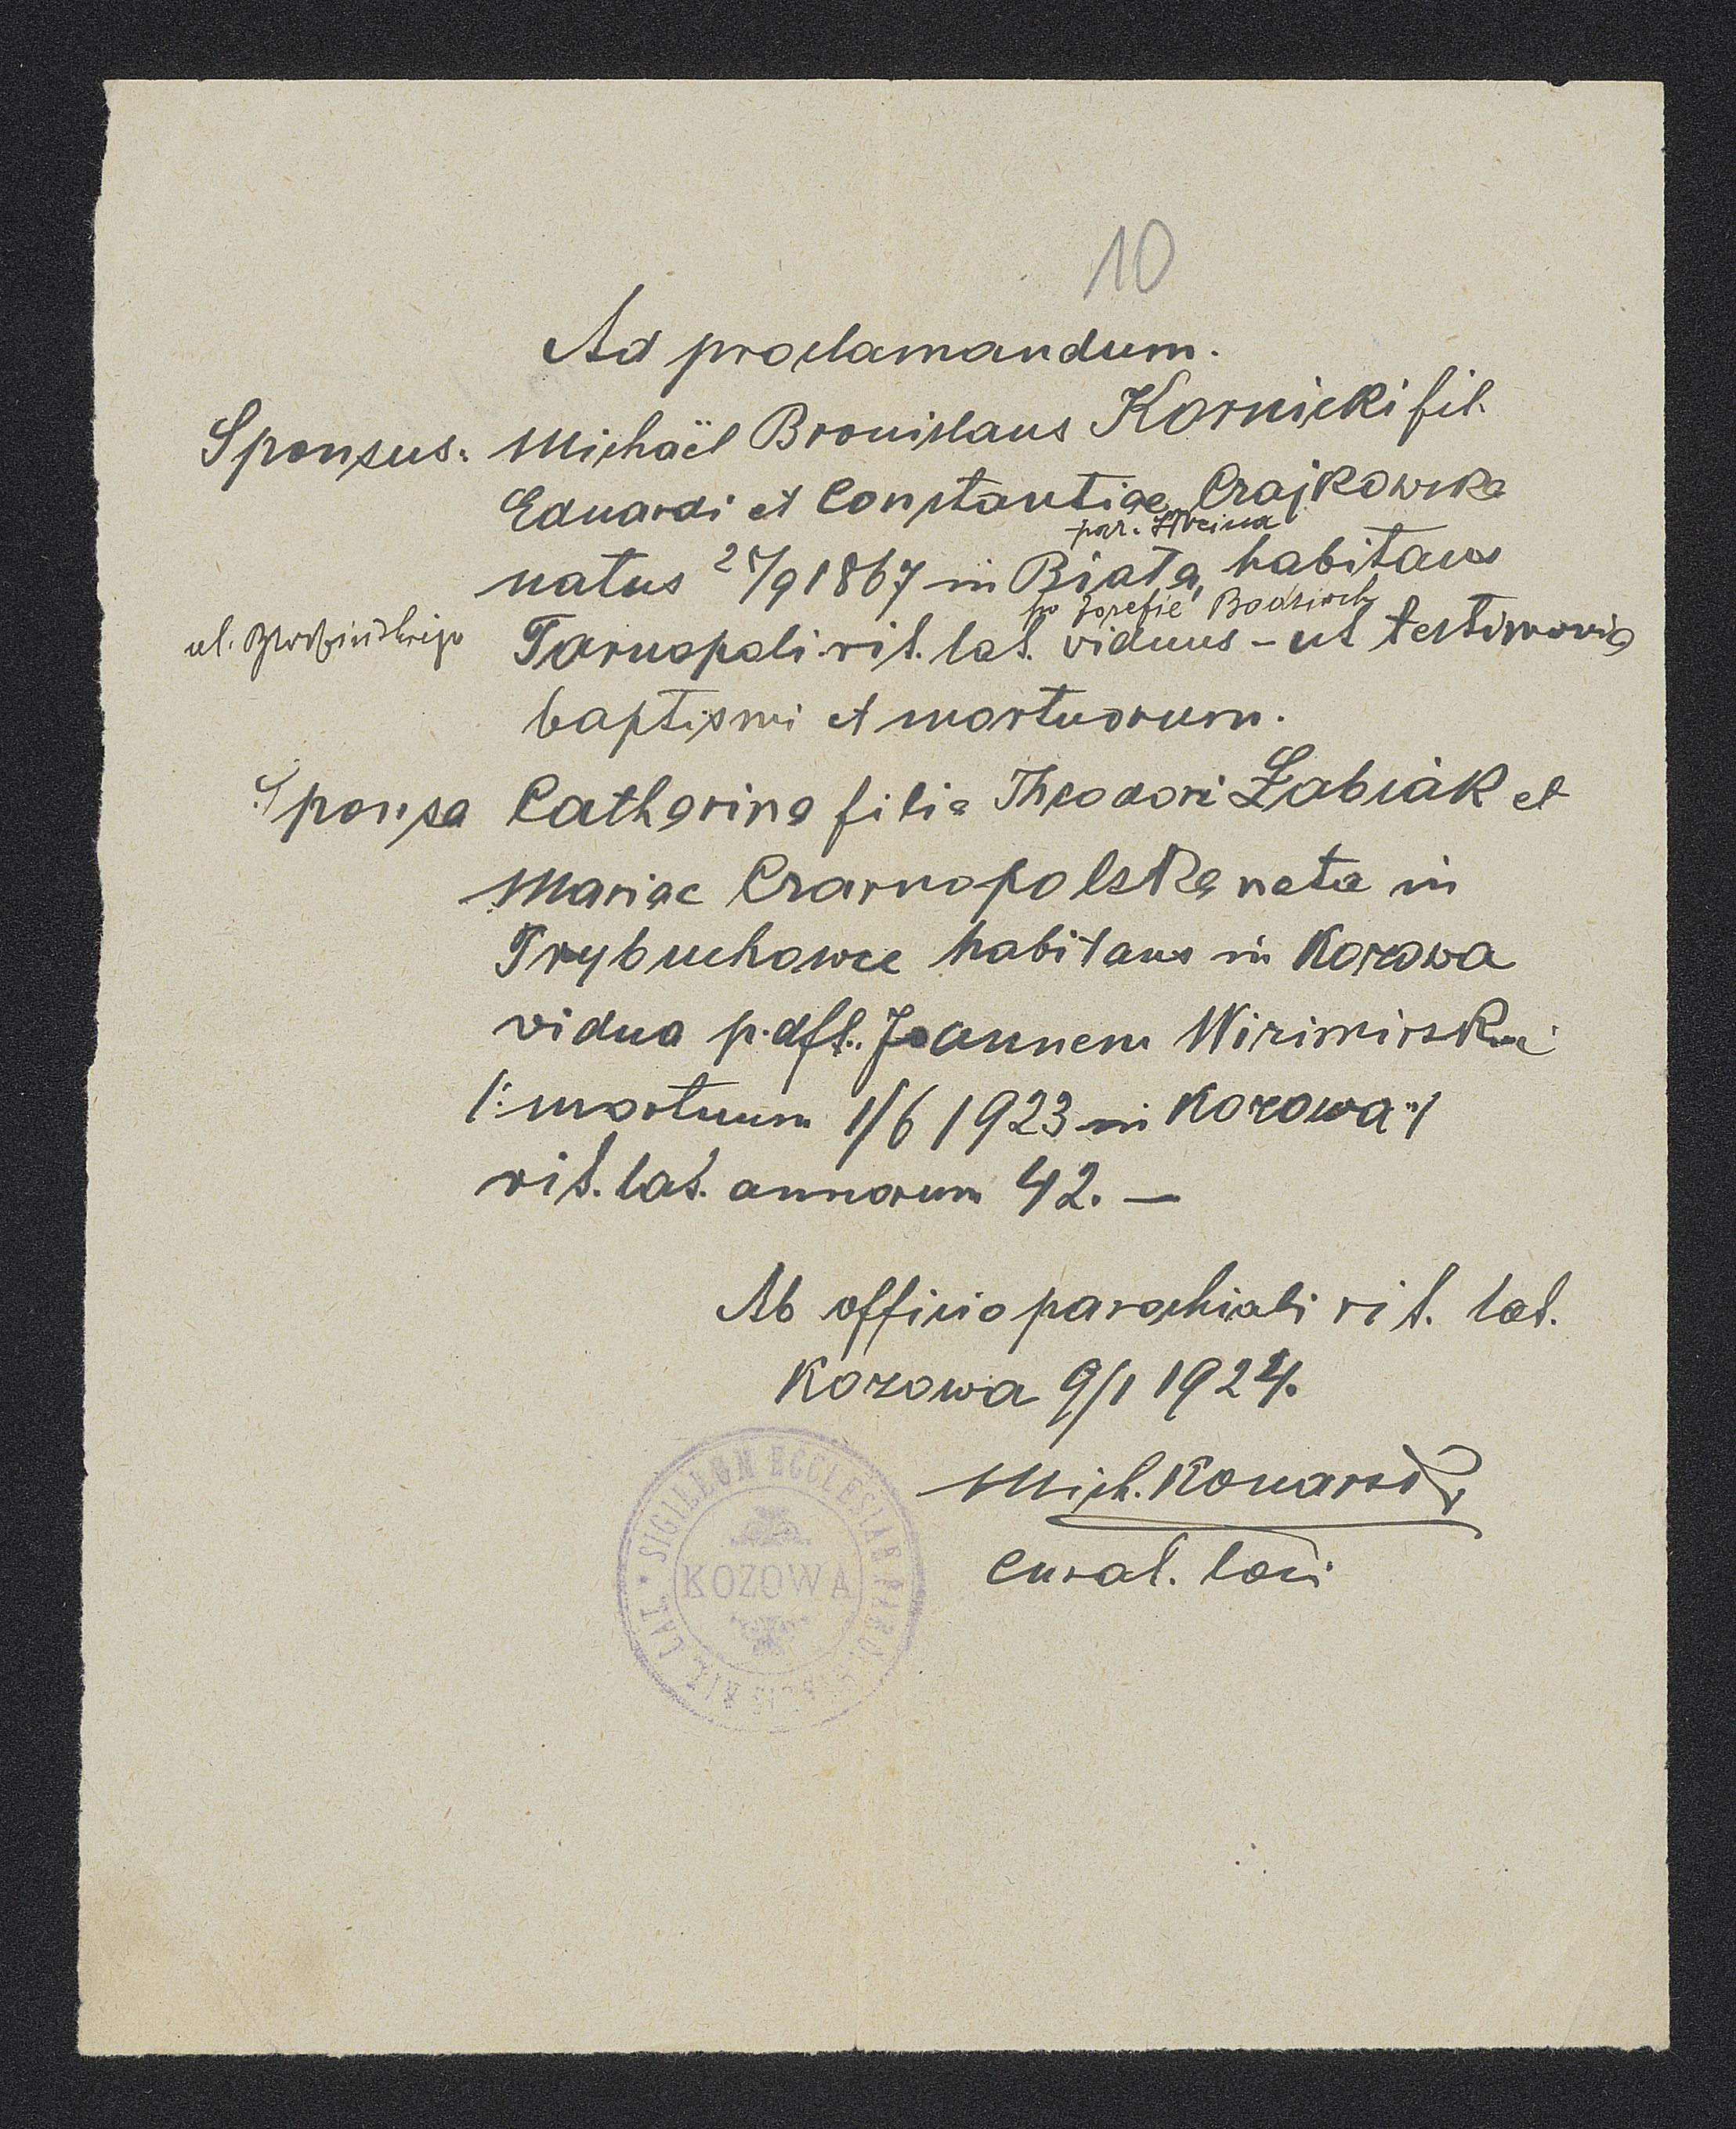 10
Ad proclamandum.
Sponsus. Michaël Bronislaus Kornicki fil.
Eduardi et Constantiae Czajkowska
par.
natus 27/9 1867 in Biała, habitans
po Józefie
Tarnopoli rit. lat. viduus - ut testimonia
baptismi et mortuorum.
Sponsa Catharina filia Theodori Żabiak et
Mariae Czarnopolska nata in
Trybuchowce habitans in Kozowa
vidua p. dft. Joannem
/: mortuum 1/6 1923 in Kozowa :/
rit. lat. annorum 42. —
Ab officio parochiali rit. lat.
Kozowa 9/1 1924.
Mich. Konarski
curat. loci
SIGILLUM ECCLESIAE PAROCHIALIS RIT. LAT.
KOZOWA